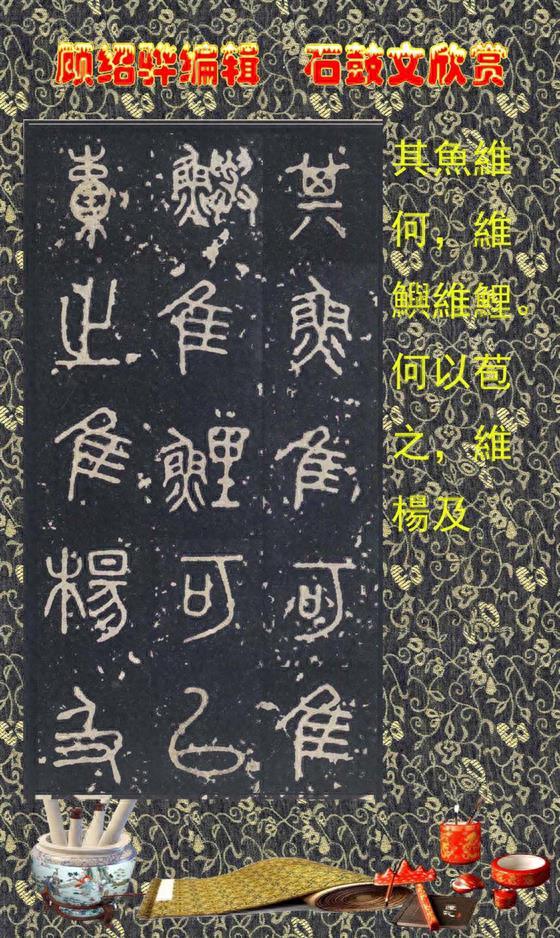 顾绍骅编辑 石鼓文欣赏
其魚隹可隹
鱮隹鯉可㠯
橐之隹楊及
其魚維
何，維
鱮維鯉。
何以苞
之，維
楊及